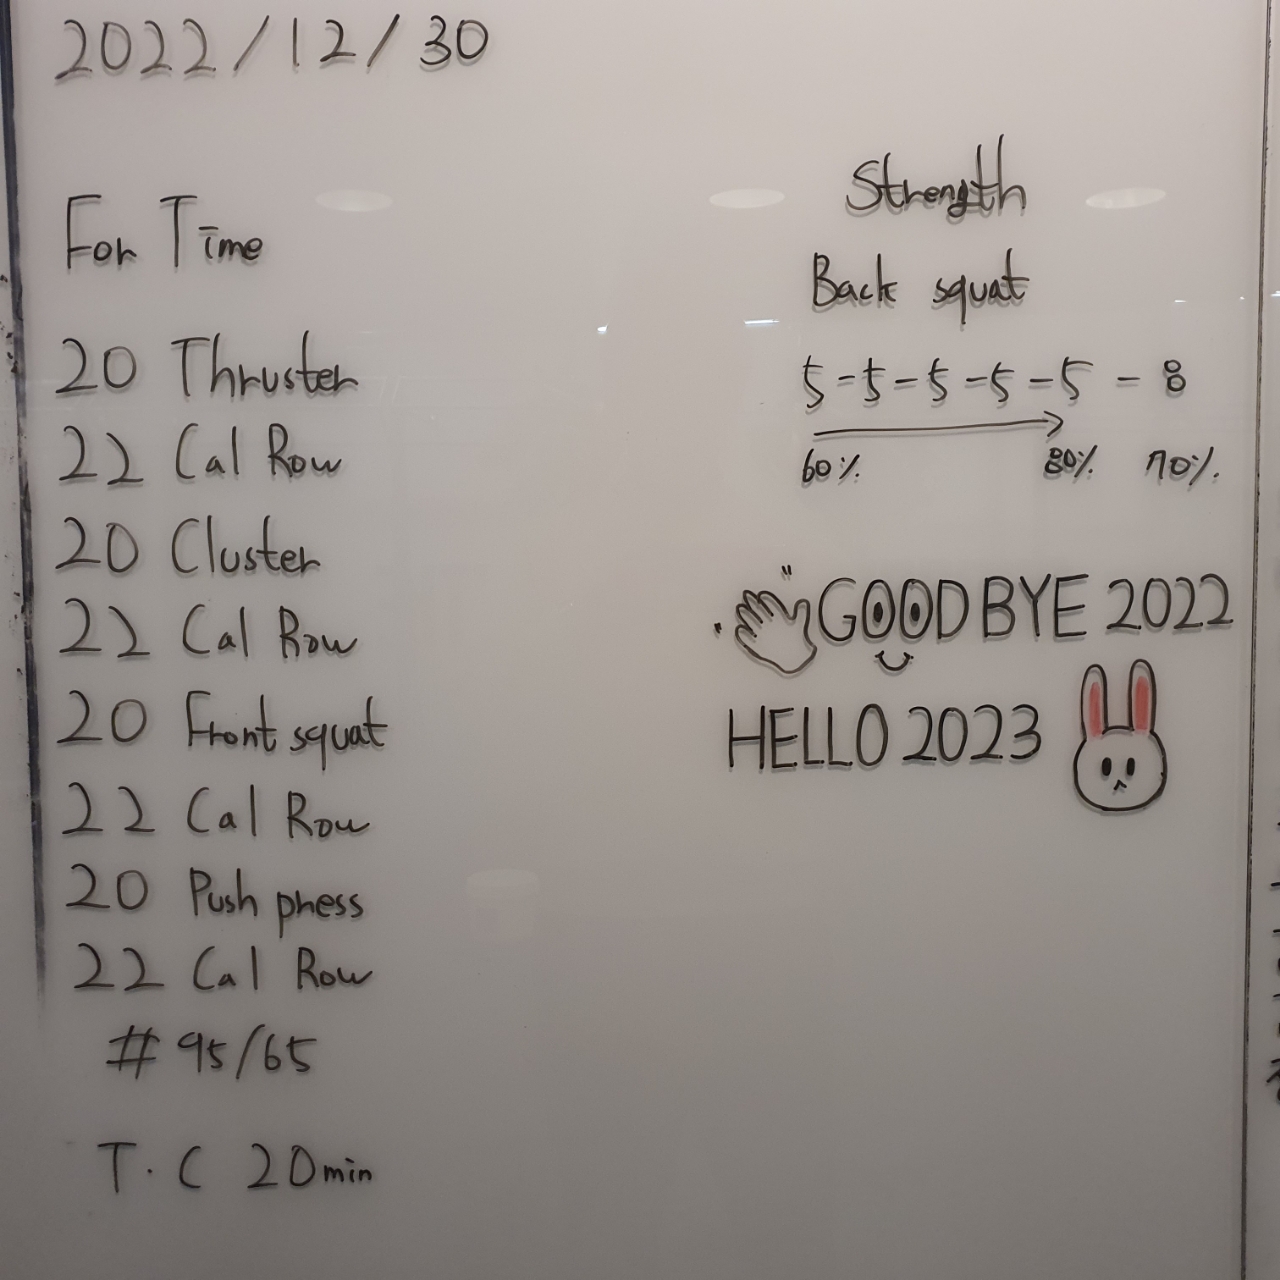 2022/12/30
For Time
20 Thruster
22 Cal Row
20 Cluster
22 Cal Row
20 Front squat
22 Cal Row
20 Push press
22 Cal Row
# 95/65
T.C 20min
Strength
Back squat
5-5-5-5-5-8
60% 80% 70%
GOOD BYE 2022
HELLO 2023